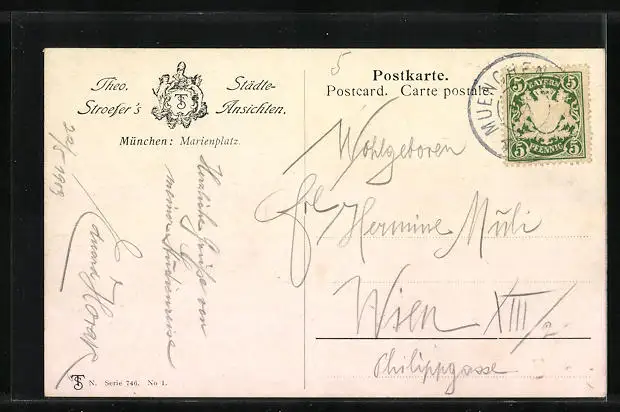 Theo. Stroefer's
Städte-Ansichten.
München: Marienplatz.
TS
22/5 1909
Herzliche Grüße von
meiner Studienreise
Eduard
N. Serie 746. No 1.
5
Postkarte.
Postcard. Carte postale.
MUENCHEN
BAYERN
5 5
5 PFENNIG 5
Wohlgeboren
Frl Hermine Muli
Wien XIII/2.
Philippgasse